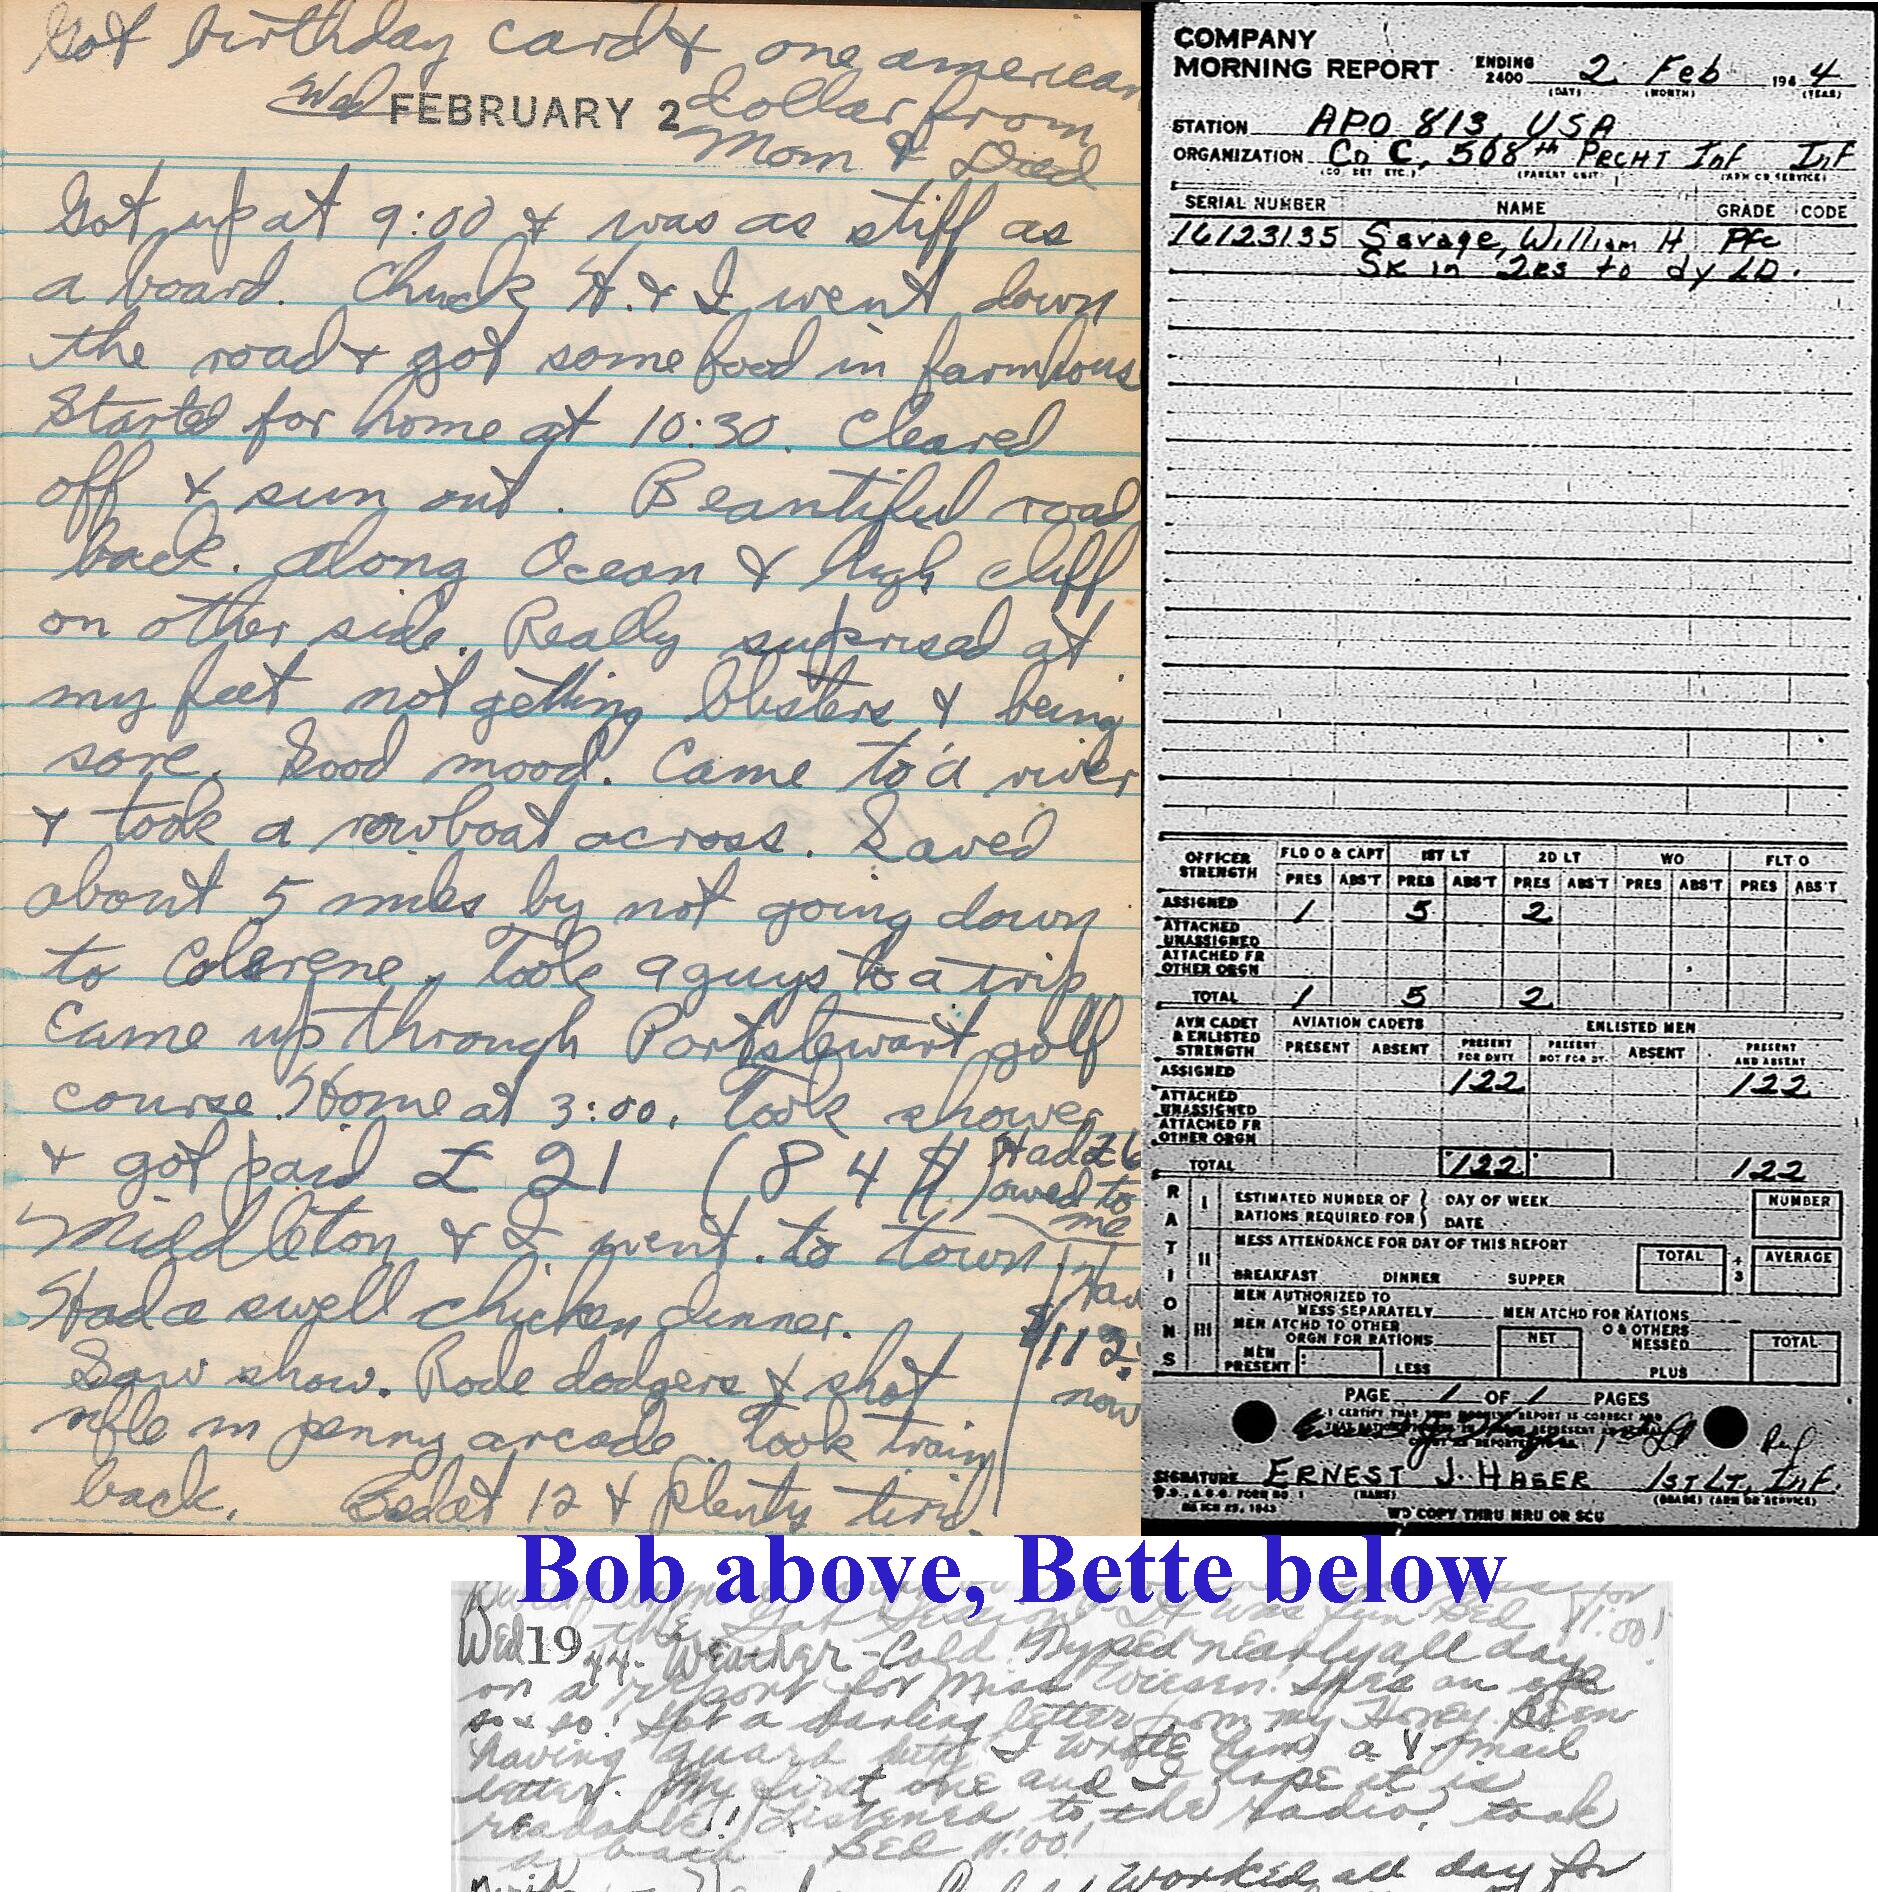 Got birthday card & one american
Wed FEBRUARY 2 dollar from
Mom & Dad
Got up at 9:00 & was as stiff as
a board. Chuck H. & I went down
the road & got some food in farmhous
Started for home at 10:30. Cleared
off & sun out. Beautiful road
back. Along Ocean & high cliff
on other side. Really suprised at
my feet not getting blisters & being
sore. Good mood. Came to a river
& took a rowboat across. Saved
about 5 miles by not going down
to Colerene. Took 9 guys to a trip
Came up through Portstewart golf
course. Home at 3:00. Took shower
& got paid £ 21 (84 $) Had £6
owed to
me
Middleton & I went to town
Had a swell chicken dinner.
Hav
$112
now
Saw show. Rode dodgers & shot
rifle in penny arcade. Took train
back. Bed at 12 & plenty tird.
COMPANY
MORNING REPORT ENDING 2400 2 Feb 1944
(DAY) (MONTH) (YEAR)
STATION APO 813, USA
ORGANIZATION Co C, 508th PRCHT Inf Inf
(CO. DET ETC.) (PARENT UNIT) (ARM OR SERVICE)
SERIAL NUMBER NAME GRADE CODE
16123135 Savage, William H Pfc
Sk in 2RS to dy LD.
OFFICER STRENGTH FLD O & CAPT 1ST LT 2D LT WO FLT O
PRES ABS'T PRES ABS'T PRES ABS'T PRES ABS'T PRES ABS'T
ASSIGNED 1 5 2
ATTACHED UNASSIGNED
ATTACHED FR OTHER ORGN
TOTAL 1 5 2
AVN CADET & ENLISTED STRENGTH AVIATION CADETS ENLISTED MEN
PRESENT ABSENT PRESENT FOR DUTY PRESENT NOT FOR DY. ABSENT PRESENT AND ABSENT
ASSIGNED 122 122
ATTACHED UNASSIGNED
ATTACHED FR OTHER ORGN
TOTAL 122 122
RATIONS
I ESTIMATED NUMBER OF RATIONS REQUIRED FOR DAY OF WEEK DATE NUMBER
II MESS ATTENDANCE FOR DAY OF THIS REPORT TOTAL ÷3 AVERAGE
BREAKFAST DINNER SUPPER
III MEN AUTHORIZED TO MESS SEPARATELY MEN ATCHD FOR RATIONS
MEN ATCHD TO OTHER ORGN FOR RATIONS NET O & OTHERS MESSED TOTAL
MEN PRESENT LESS PLUS
PAGE 1 OF 1 PAGES
I CERTIFY THAT THIS MORNING REPORT IS CORRECT AND
SIGNATURE ERNEST J. HAGER 1ST LT, Inf.
(NAME) (GRADE) (ARM OR SERVICE)
W.D., A.G.O. FORM NO. 1
MARCH 25, 1943
WD COPY THRU MRU OR SCU
Bob above, Bette below
the Gab Session! It was fun Bed 11:00!
Wed 1944. Weather - Cold! Typed nearly all day
on a report for Miss
so & so! Got a darling letter from my Honey. Been
having guard duty. I wrote him a V-mail
letter. My first one and I hope it is
readable!! Listened to the radio, took
a bath - Bed 11:00!
Worked all day for